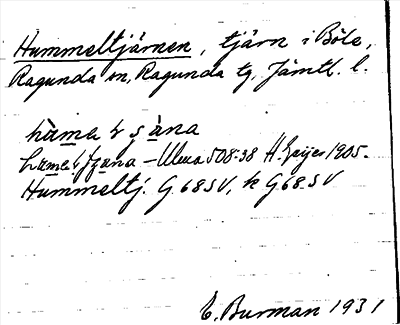 Hummeltjärnen, tjärn i Böle,
Ragunda sn, Ragunda tg, Jämtl. l.
hàmełşàna
– Ulma 508:38 H. Geijer 1905.
Hummeltj. G 68 SV, k G 68 SV
E. Burman 1931